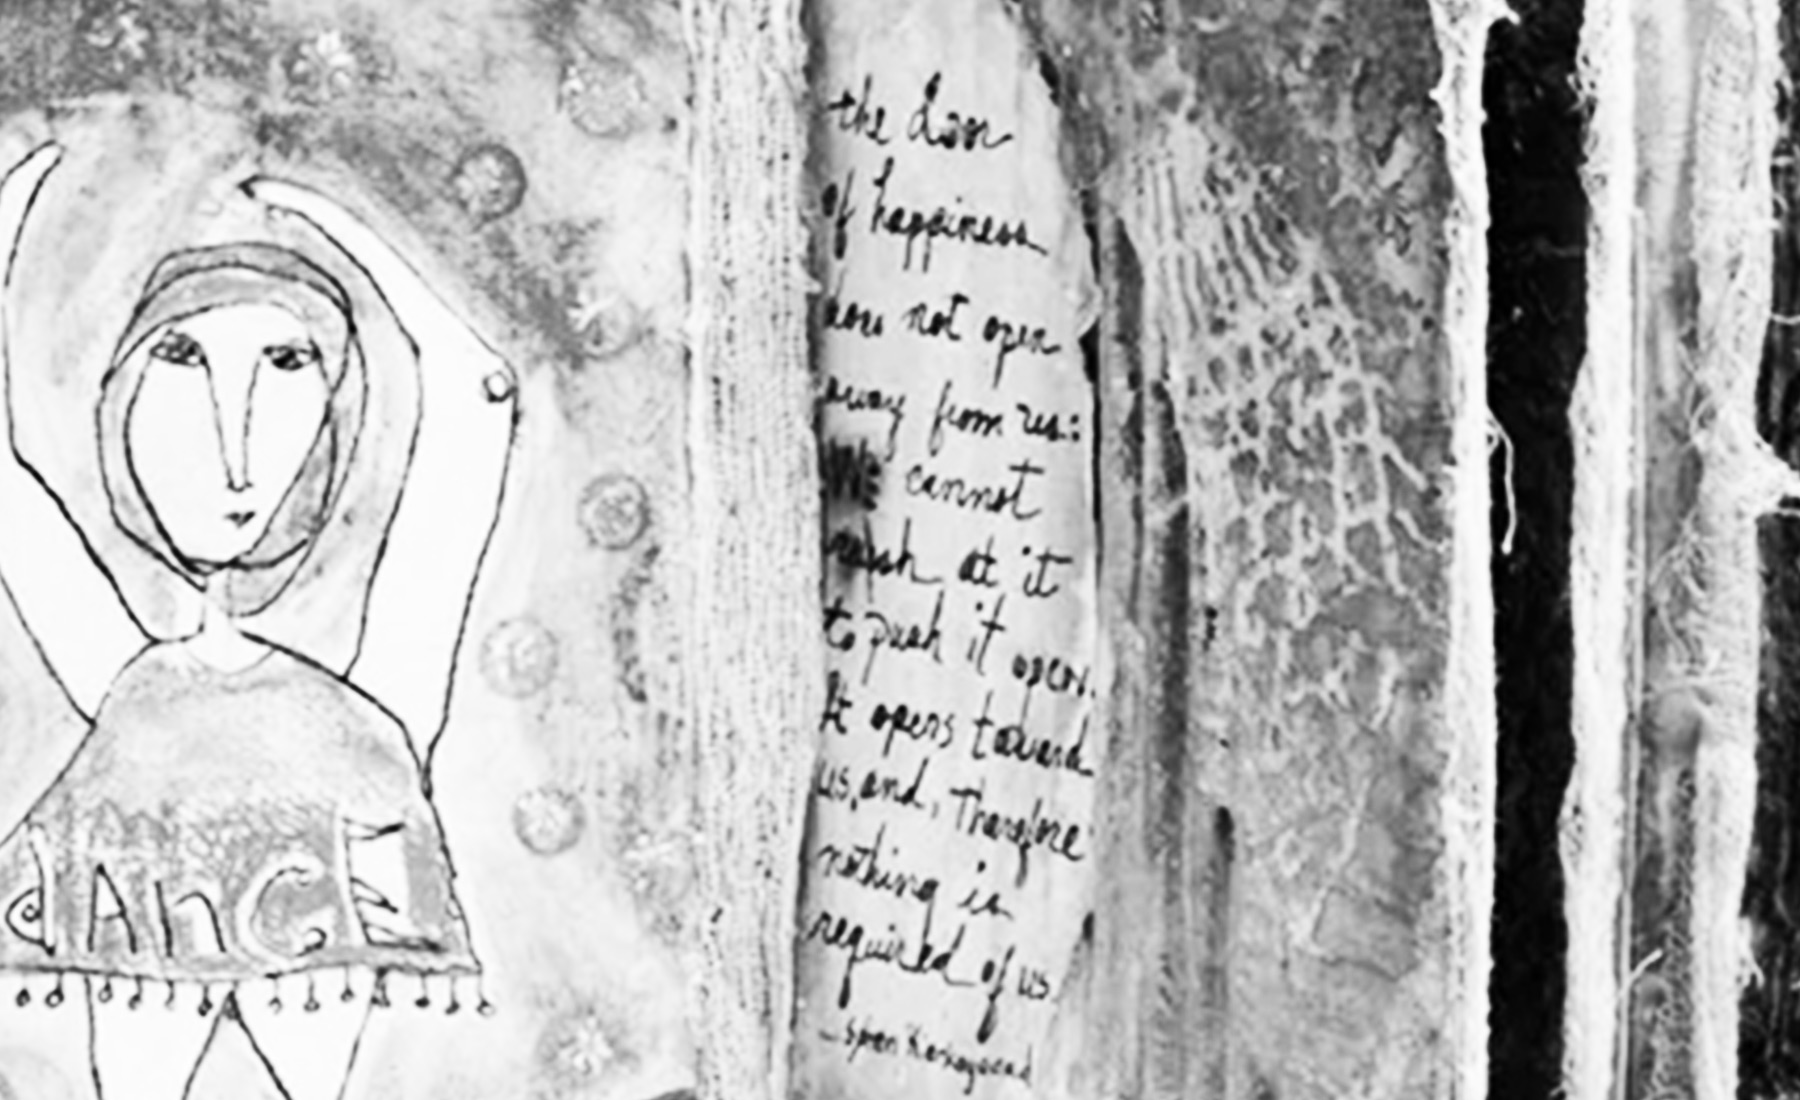 dAnCE
the door
of happiness
does not open
away from us:
We cannot
rush at it
to push it open.
It opens toward
us, and, Therefore
nothing is
required of us.
- Soren Kierkegaard